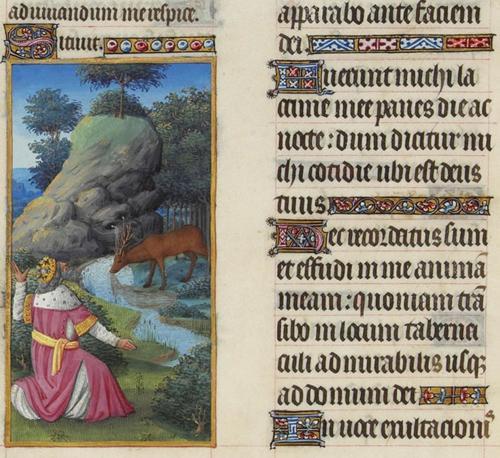 adiuuandum me respice.
Sicut.
apparabo ante faciem
dei.
Fuerunt michi la
crime mee panes die ac
nocte : dum dicitur mi
chi cotidie ubi est deus
tuus
Hec recordatus sum
et effudi in me animā
meam : quoniam trā
sibo in locum taberna
culi admirabilis usqꝫ
ad domum dei
In uoce exultacionis